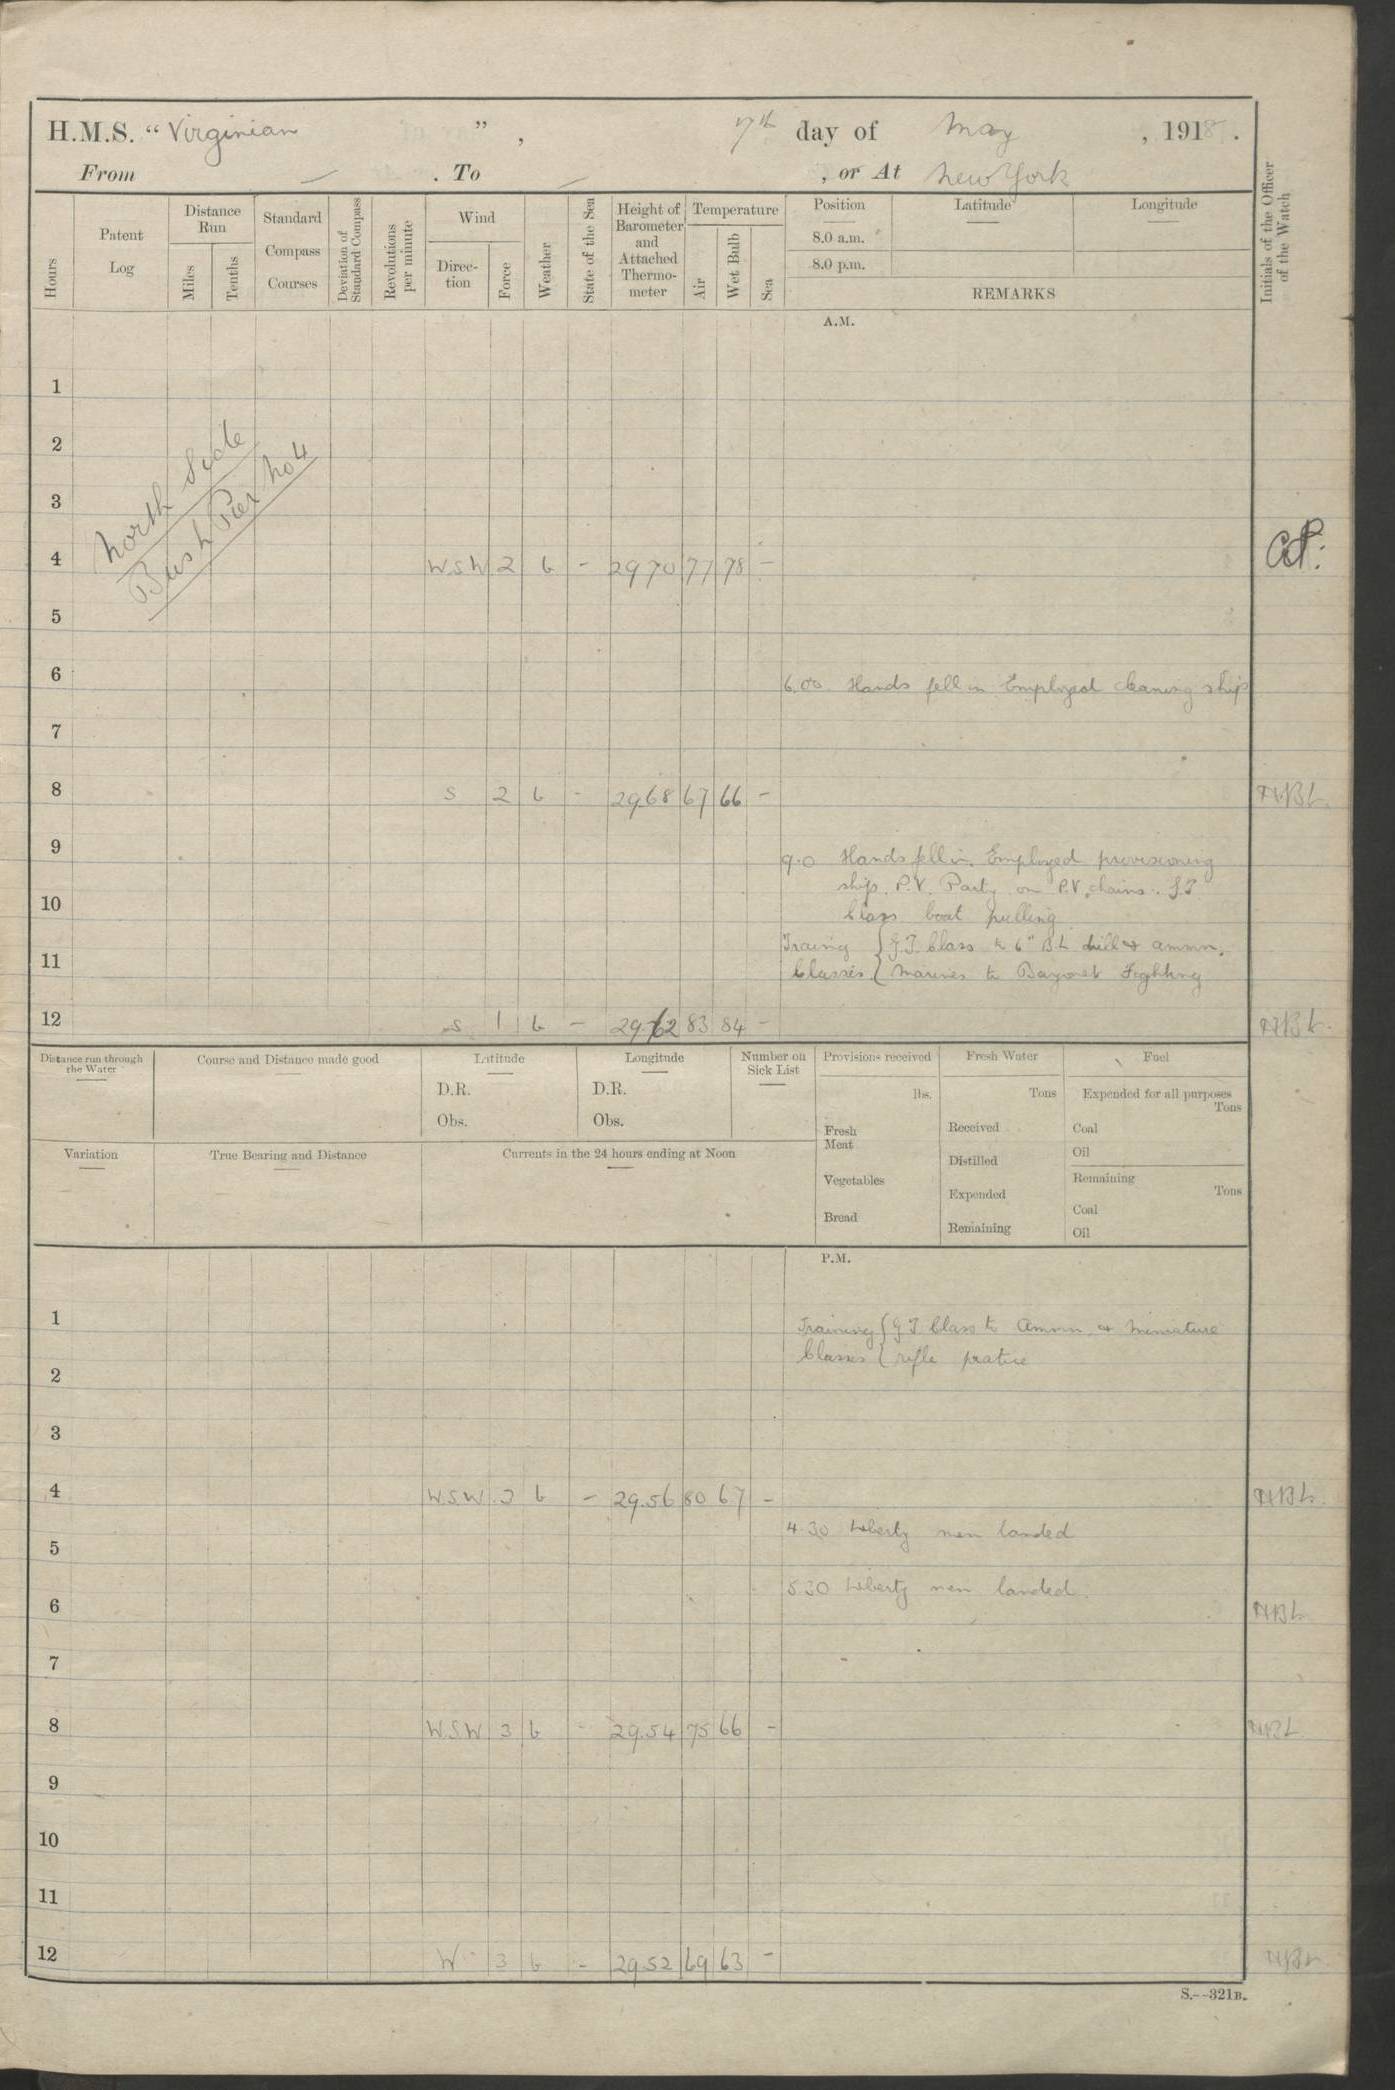 H.M.S. “Virginian”, 7th day of May, 1918.
From — . To — , or At New York
Hours
Patent Log
Distance Run
Miles
Tenths
Standard Compass Courses
Deviation of Standard Compass
Revolutions per minute
Wind
Direction
Force
Weather
State of the Sea
Height of Barometer and Attached Thermometer
Temperature
Air
Wet Bulb
Sea
Position
8.0 a.m.
8.0 p.m.
Latitude
Longitude
REMARKS
Initials of the Officer of the Watch
A.M.
1
2
3
North Side
Bush Pier No 4
4 WSW 2 b - 29.70 77 78 -
5
6 6.00 Hands fell in Employed cleaning ship
7
8 S 2 b - 29.68 67 66 - HBL
9 9.0 Hands fell in. Employed provisioning
ship. P.V. Party on P.V. chains. S.T
10 Class boat pulling
Traing { G.T. Class to 6" B.L drill & ammn.
11 Classes { Marines to Bayonet Fighting
12 S 1 b - 29.62 83 84 - HBL
Distance run through the Water
Course and Distance made good
Latitude
D.R.
Obs.
Longitude
D.R.
Obs.
Number on Sick List
Provisions received
lbs.
Fresh Meat
Vegetables
Bread
Fresh Water
Tons
Received
Distilled
Expended
Remaining
Fuel
Expended for all purposes
Tons
Coal
Oil
Remaining
Tons
Coal
Oil
Variation
True Bearing and Distance
Currents in the 24 hours ending at Noon
P.M.
1 Training { G T Class to Ammn & Miniature
Classes { rifle pratice
2
3
4 W.S.W. 3 b - 29.56 80 67 - HBL
4.30 Liberty men landed
5
5.30 Liberty men landed.
6 HBL
7
8 W.S.W 3 b - 29.54 75 66 - HBL
9
10
11
12 W 3 b - 29.52 69 63 - HBL
S.—321B.